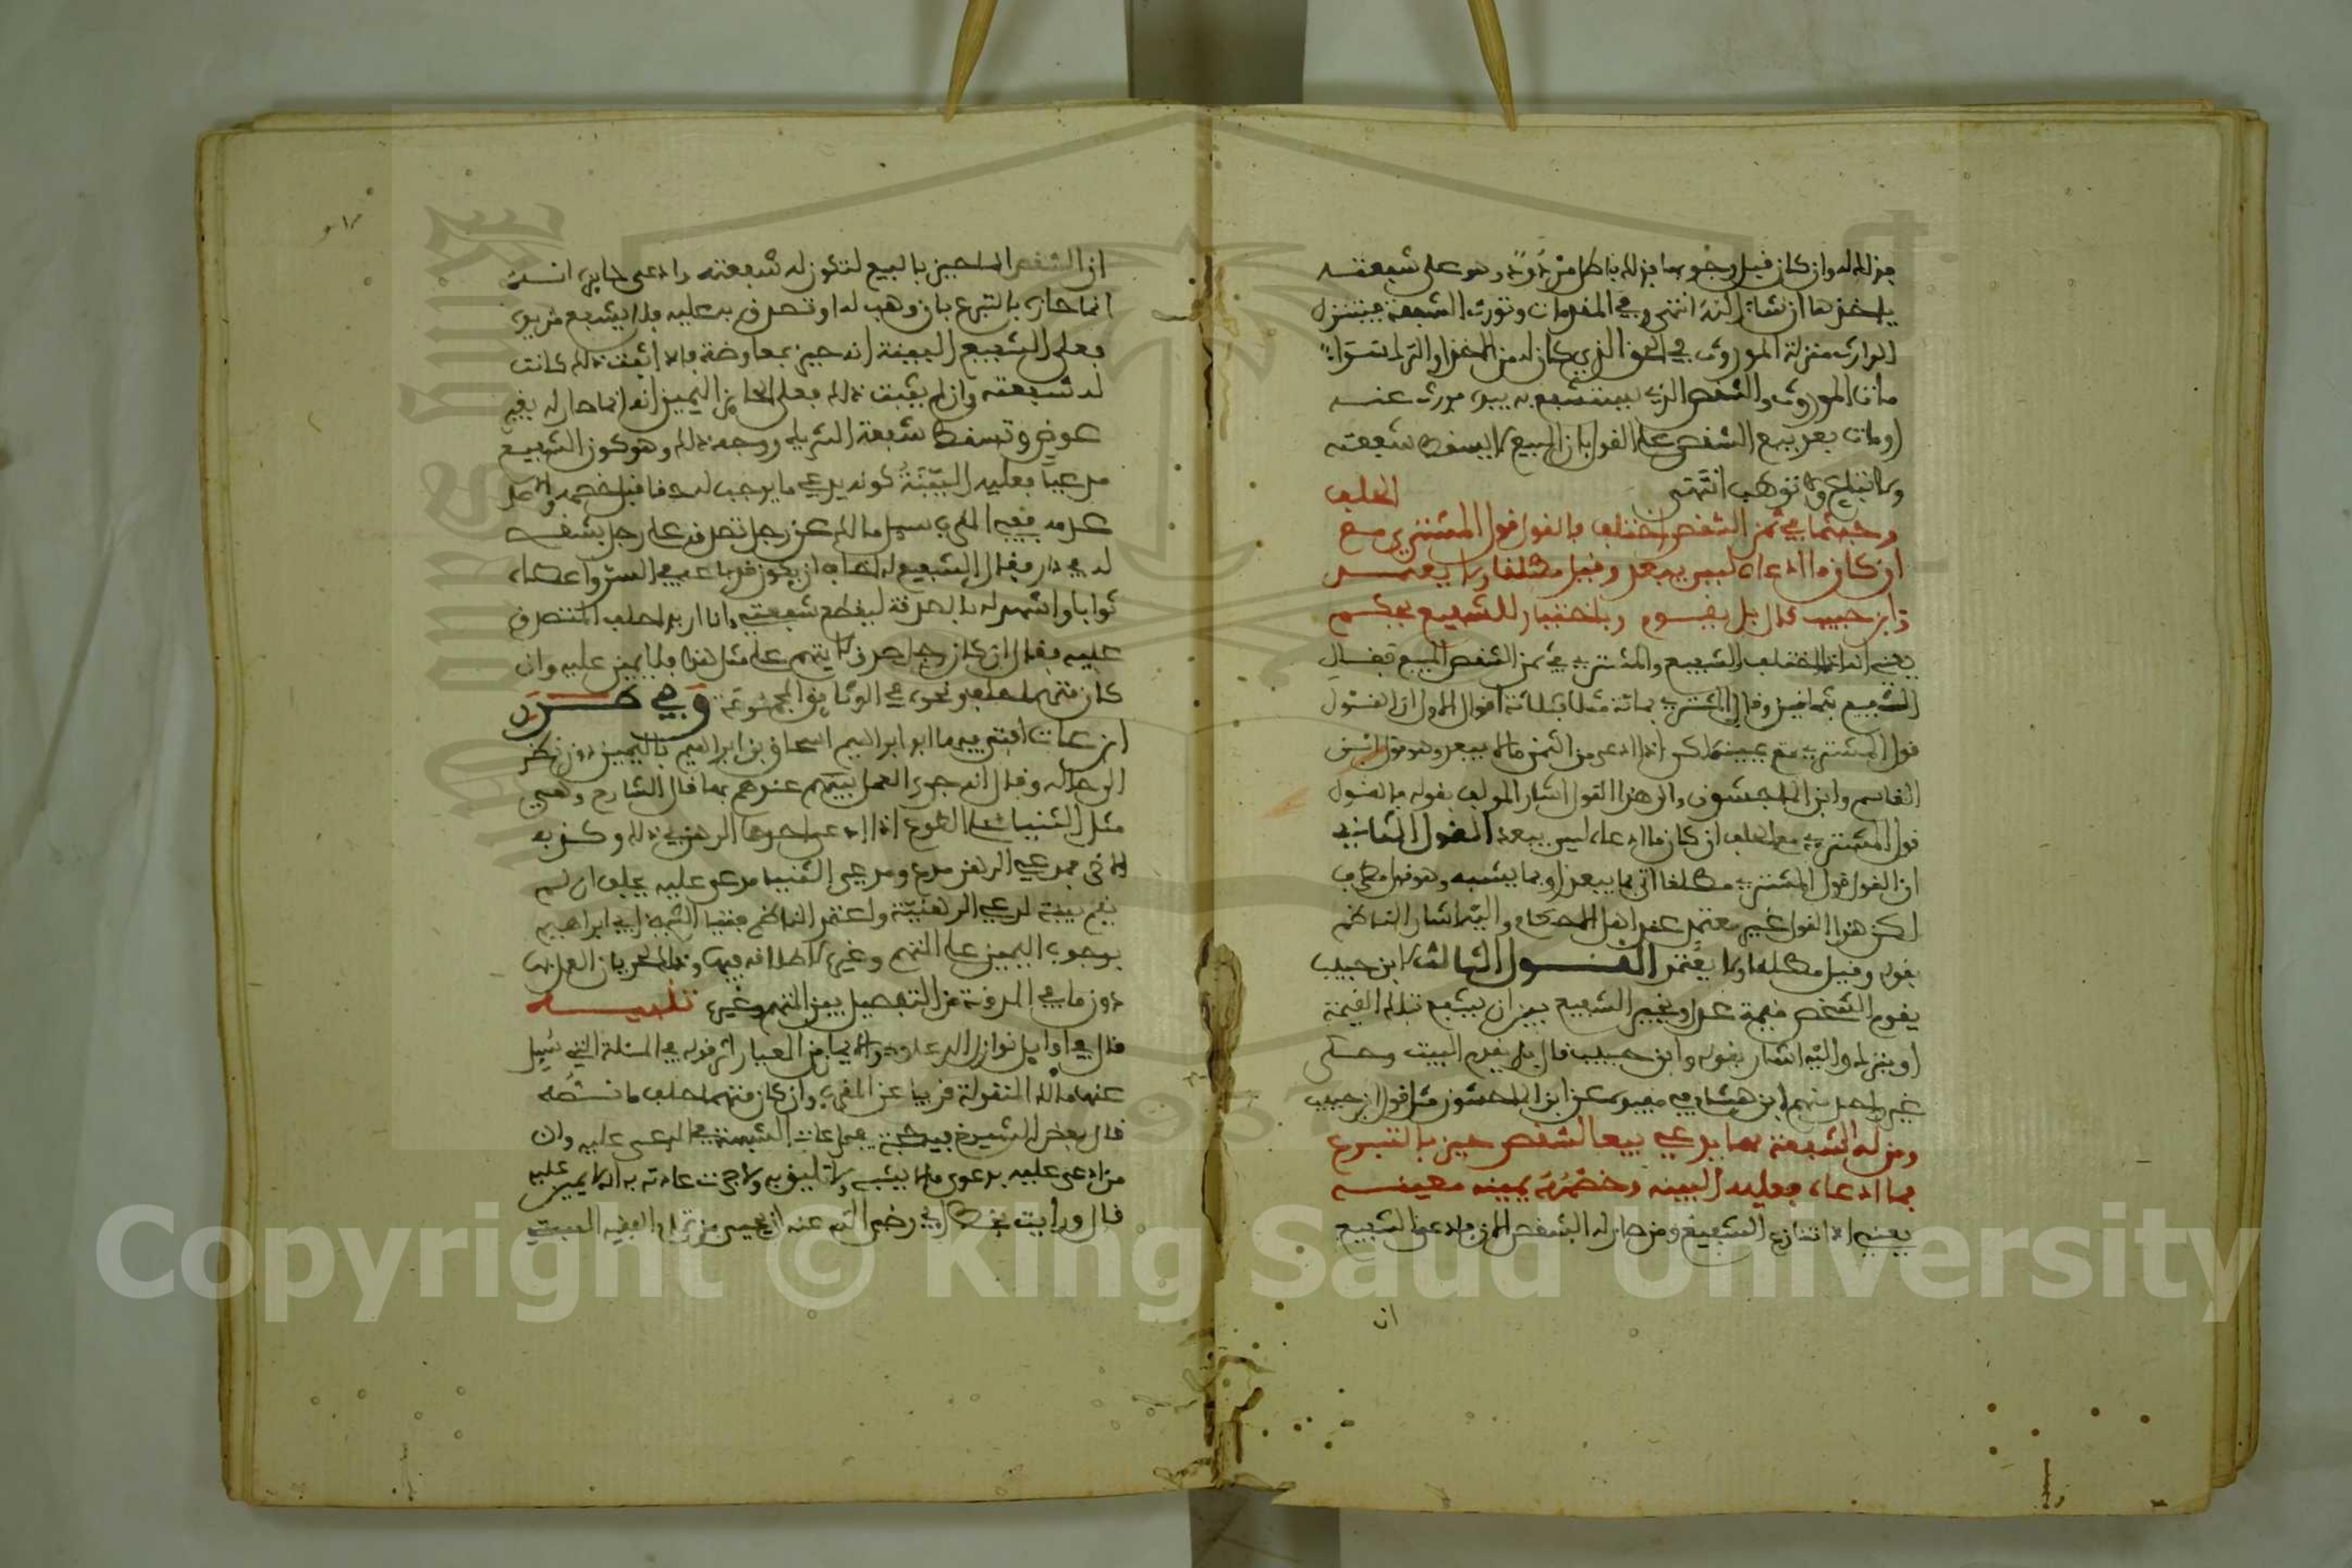 فنزلله وان كان قبل وجوبها فنزلله باطل مردود وهو على شفعته
ياخذها ان شاء الله انتهى وفي المقدمات وتورث الشفعة فيتنزل
الوارث منزلة الموروث في الحق الذي كان له من الاخذ او الترك سواء
مات الموروث والشقص الذي يستشفع به بيده فورث عنه
او مات بعد بيع الشقص على القول بان البيع لا يسقط شفعته
ولا تباع ولا توهب انتهى
الحلف
وحيثما في ثمن الشقص اختلف فالقول قول المشتري مع
ان كان ما ادعاه ليس يبعد وقيل مطلقا ولا يعتمد
وابن حبيب قال بل يقوم وباختيار للشفيع يحكم
يعني انه اذا اختلف الشفيع والمشتري في ثمن الشقص المبيع فقال
الشفيع بثمانين وقال المشتري بمائة مثلا فثلاثة اقوال الاول ان القول
قول المشتري مع يمينه لكن اذا ادعى من الثمن ما لا يبعد وهو قول ابن
القاسم وابن الماجشون والى هذا القول اشار المولف بقوله فالقول
قول المشتري مع الحلف ان كان ما ادعاه ليس يبعد القول الثاني
ان القول قول المشتري مطلقا اتى بما يبعد او بما يشبه وهو قول مطرف
لكن هذا القول غير معتمد عند اهل الاحكام واليه اشار الناظم
بقوله وقيل مطلقا ولا يعتمد القول الثالث لابن حبيب
يقوم الشقص قيمة عدل ويخير الشفيع بين ان يشفع بتلك القيمة
او يترك واليه اشار بقوله وابن حبيب قال بل يقوم البيت وحكى
غير واحد منهم ابن هشام في مفيده عن ابن الماجشون مثل قول ابن حبيب
ومن له الشفعة مهما يدعي بيعا لشقص حيز بالتبرع
فما ادعاه فعليه البينة وخصمه يمينه معينه
يعني اذا تنازع الشفيع ومن صار له الشقص فادعى الشفيع
ان
ان الشقص انما حيز بالبيع لتكون له شفعته وادعى حايزه انه
انما حازه بالتبرع بان وهب له او تصدق به عليه فلا يشفع من يده
فعلى الشفيع البينة انه حيز بمعاوضة فاذا اثبت ذلك كانت
له شفعته وان لم يثبت ذلك فعلى الحائز اليمين انه انما صار له بغير
عوض وتسقط شفعة الشريك ووجه ذلك وهو كون الشفيع
مدعيا فعليه البينة كونه يدعي ما يوجب له حقا قبل خصمه والاصل
عدمه ففي المقرب سيل مالك عن رجل تصدق على رجل بشقص
له في دار فقال الشفيع له اخاف ان يكون قد باعه في السر واعطاه
ثوابا واشهد له بالصدقة ليقطع شفعتي وانا اريد احلف المتصدق
عليه فقال ان كان رجل صدق لا يتهم على مثل هذا فلا يمين عليه وان
كان متهما احلف ونحوه في الوثايق المجموعة وفي طرر
ابن عات افتى فيها ابو ابراهيم اسحاق بن ابراهيم باليمين دون نظر
الى حاله وقال انه جرى العمل بينهم عندهم بها قال الشارح وهي
مثل الثنيا على الطوع اذا ادعى احدهما الرهن في ذلك وكذبه
الاخر فمدعي الرهن مدع ومدعي الثنيا مدعى عليه يحلف ان لم
تقم بينة لمدعي الرهنية واعتمد الناظم فتيا الشيخ ابي ابراهيم
بوجوب اليمين على المتهم وغيره لاطلاقه فيها وذلك لجريان العمل بها
دون ما في المدونة من التفصيل بين المتهم وغيره تنبيه
قال في اوايل نوازل الدعاوى والايمان من المعيار اثر قوله في المسئلة التي سيل
عنها مالك المنقولة قريبا عن المقرب وان كان متهما احلف ما نصه
قال بعض الشيوخ فيه حجة لمراعات الشبهة في المدعى عليه وان
من ادعى عليه بدعوى مما لا يشبه ولا تليق به ولا جرت عادته به انه لا يمين عليه
قال ورايت بخط ابي رضي الله عنه ان عيسى بن الفقيه المفتي